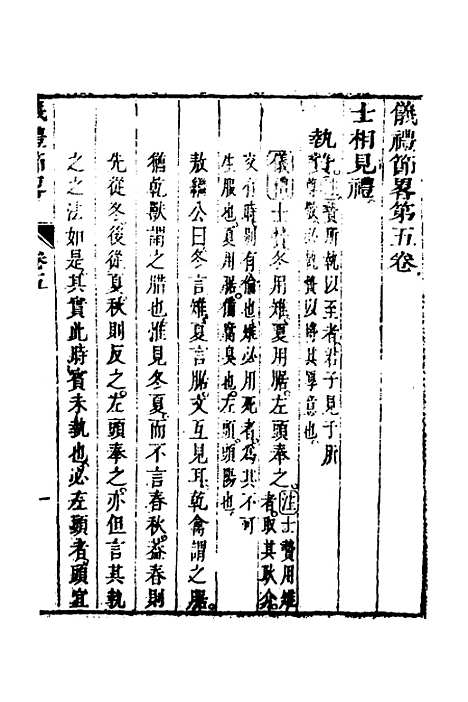 儀禮節畧第五卷
士相見禮
執贄
贄所執以至者君子見于所
尊敬必執贄以將其厚意也
儀禮士贄冬用雉夏用腒左頭奉之
注士贄用雉
者取其耿介
交有時別有倫也雉必用死者為其不可
生服也夏用腒備腐臭也左頭頭陽也
敖繼公曰冬言雉夏言腒文互見耳乾禽謂之腒
猶乾獸謂之腊也惟見冬夏而不言春秋葢春則
先從冬後從夏秋則反之左頭奉之亦但言其執
之之法如是其實此時實未執也必左頭者頭宜
儀禮節畧
卷五
一